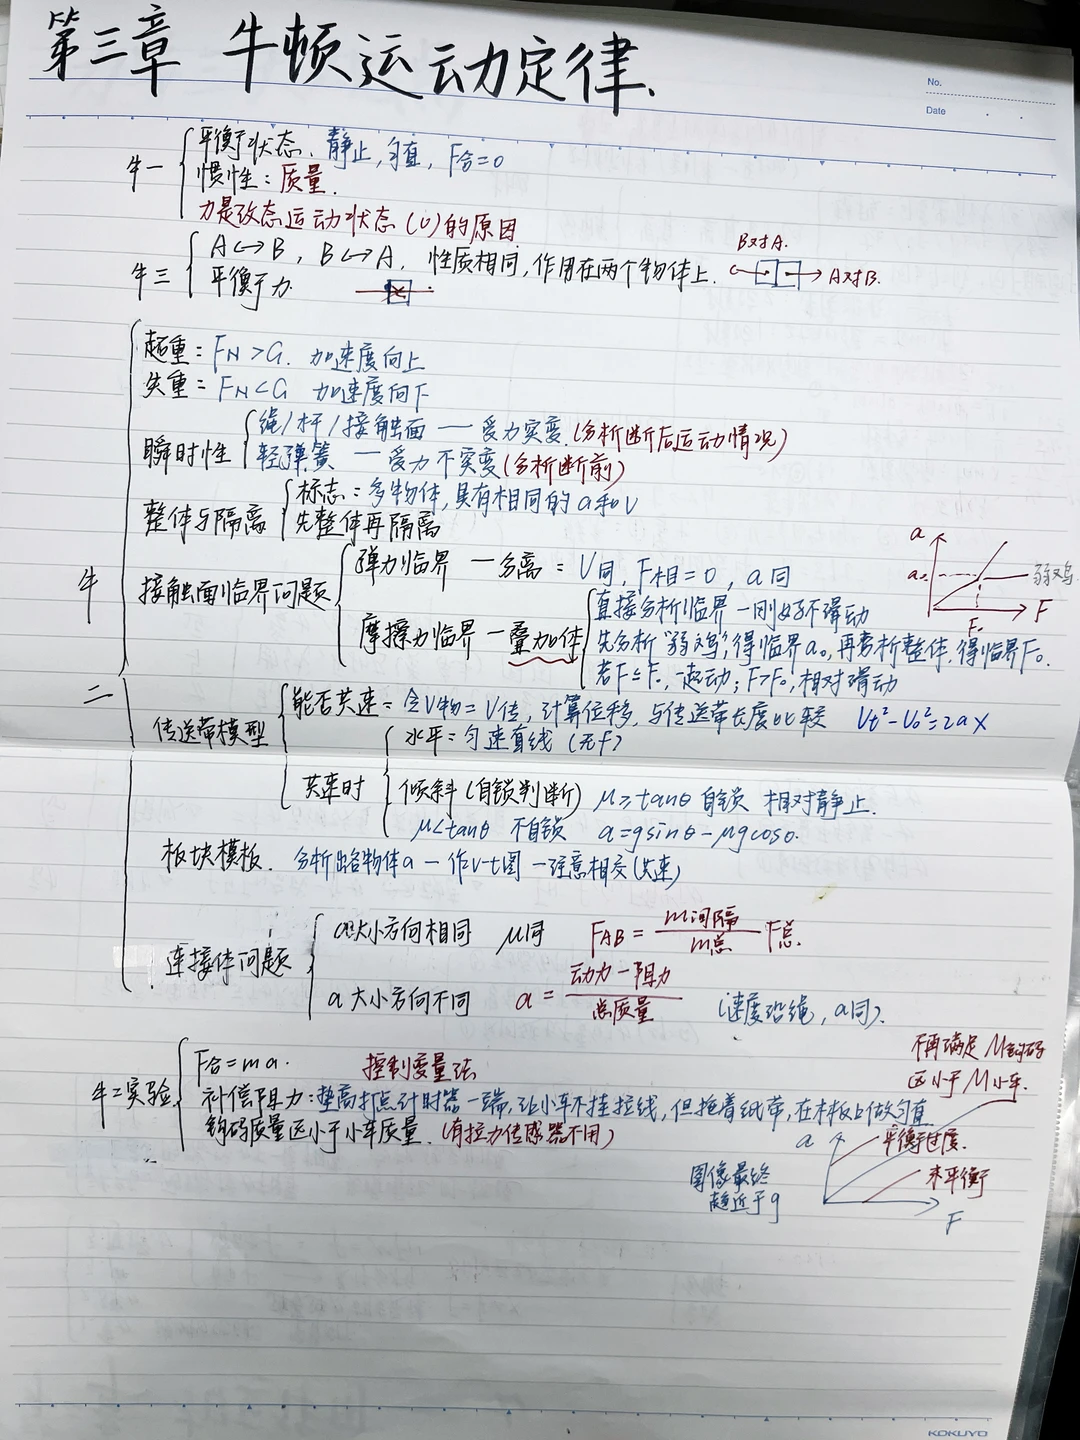 第三章 牛顿运动定律.
No.
Date
牛一
平衡状态、静止,匀直, F合=0
惯性:质量.
力是改态运动状态(υ)的原因
牛三
A↔B, B↔A, 性质相同,作用在两个物体上.
B对A.
A对B.
平衡力
牛二
超重:FN>G. 加速度向上
失重:FN<G 加速度向下
瞬时性
绳/杆/接触面 — 受力突变.(分析断后运动情况)
轻弹簧 — 受力不突变(分析断前)
整体与隔离
标志:多物体,具有相同的a和v
先整体再隔离
接触面临界问题
弹力临界 — 分离 = V同, F相=0, a同
摩擦力临界 — 叠加体
直接分析临界 — 刚好不滑动
先分析"弱鸡",得临界a₀,再旁析整体,得临界F₀.
若F≤F₀,一起动; F>F₀,相对滑动
a
a₀
弱鸡
F₀
F
传送带模型
能否共速:令V物=V传,计算位移,与传送带长度比较 Vt²-V₀²=2ax
共速时
水平:匀速直线(无f)
倾斜(自锁判断) μ≥tanθ 自锁 相对静止.
μ<tanθ 不自锁 a=gsinθ-μgcosθ.
板块模板. 分析出各物体a — 作v-t图 — 注意相交(共速)
连接体问题
a大小方向相同 μ同 FAB = m间隔/m总 F总.
a大小方向不同 a = 动力-阻力/总质量 (速度沿绳,a同).
牛二实验
F合=ma. 控制变量法
补偿阻力:垫高打点计时器一端,让小车不挂拉线,但拖着纸带,在木板上做匀直
钩码质量远小于小车质量.(有拉力传感器不用)
不再满足M钩码
远小于M小车.
a
平衡过度.
未平衡
F
图像最终
趋近于g
KOKUYO